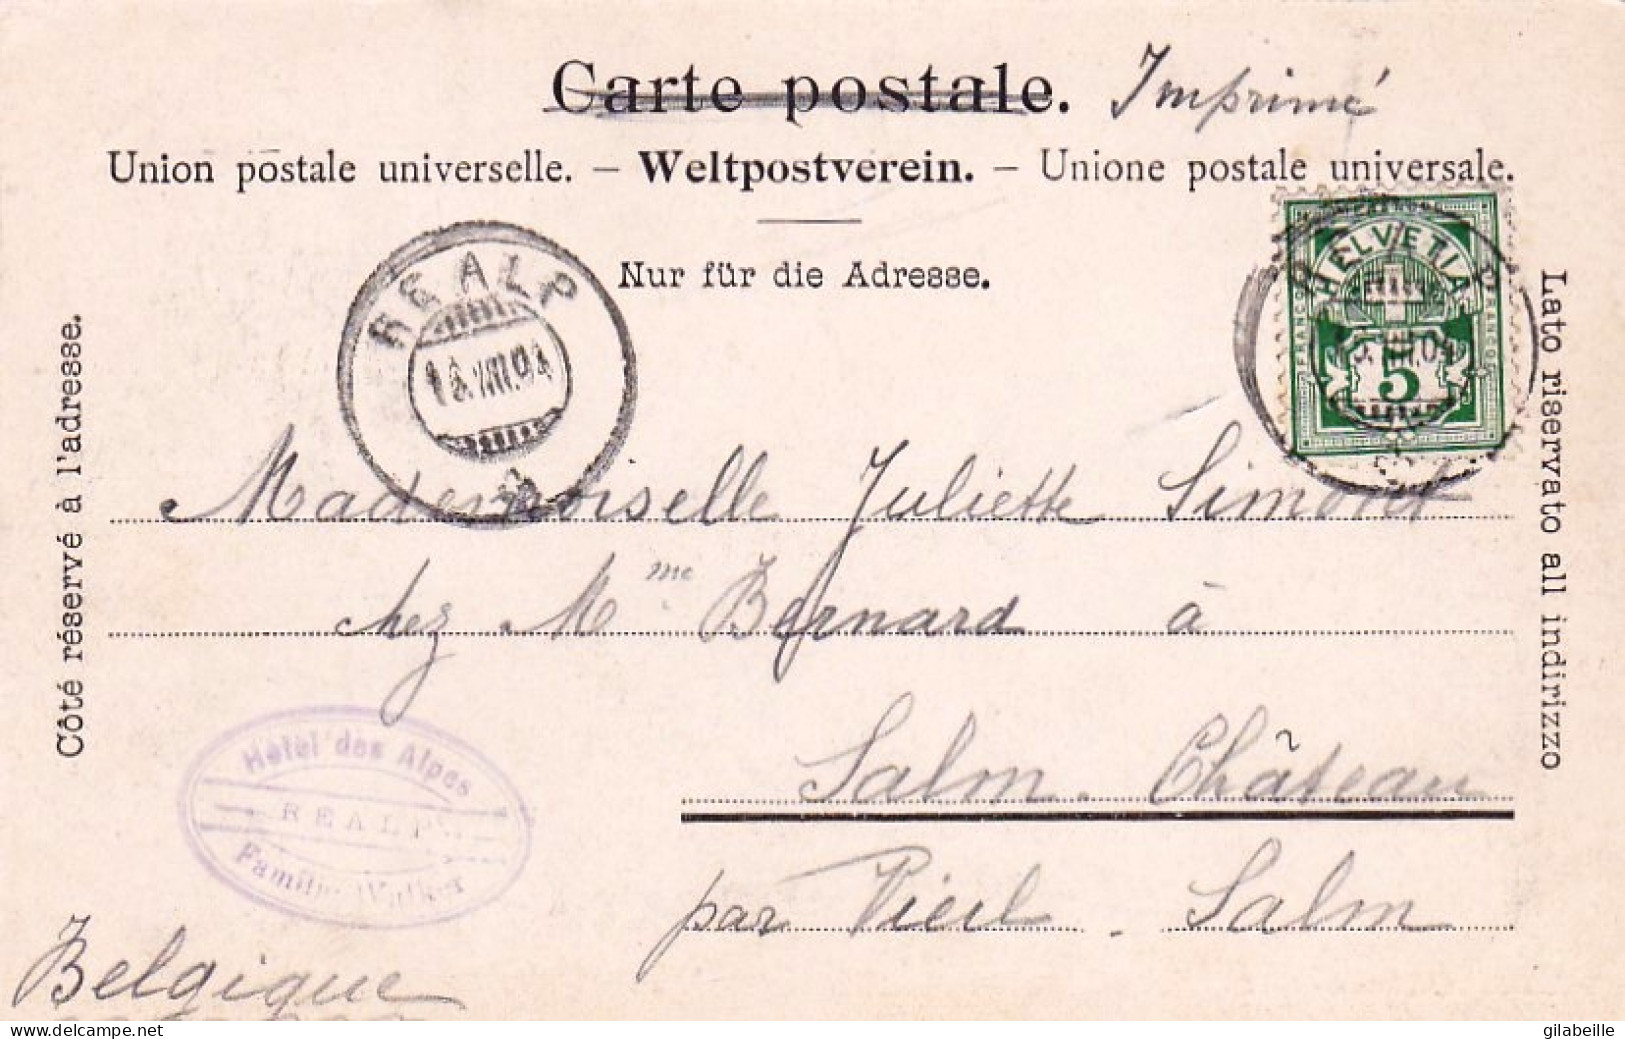 Carte postale. Imprimé
Union postale universelle. — Weltpostverein. — Unione postale universale.
Nur für die Adresse.
REALP
HELVETIA
FRANCO
FRANCO
5
Côté réservé à l'adresse.
Lato riservato all indirizzo
Mademoiselle Juliette Simonet
chez Mme Bernard à
Salm. Château
par Vieil. Salm
Hôtel des Alpes
REALP
Familie Walker
Belgique
delcampe.net
gilabeille